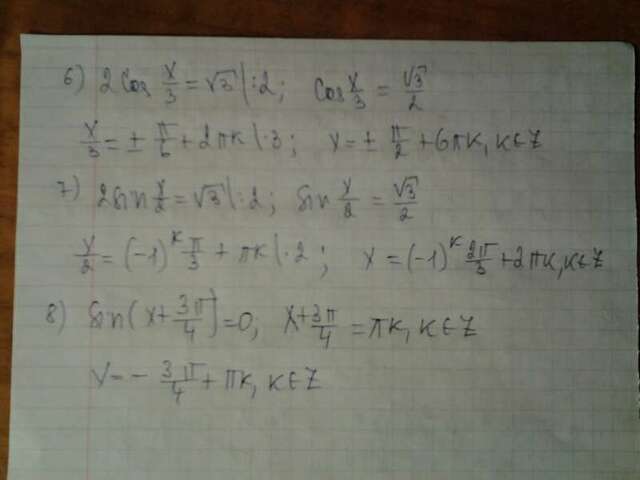 6) 2cos x/3 = √3 |:2; cos x/3 = √3/2
x/3 = ± π/6 + 2πk |·3; x = ± π/2 + 6πk, k∈Z
7) 2sin x/2 = √3 |:2; sin x/2 = √3/2
x/2 = (-1)^k π/3 + πk |·2; x = (-1)^k 2π/3 + 2πk, k∈Z
8) sin(x + 3π/4) = 0; x + 3π/4 = πk, k∈Z
x = - 3π/4 + πk, k∈Z